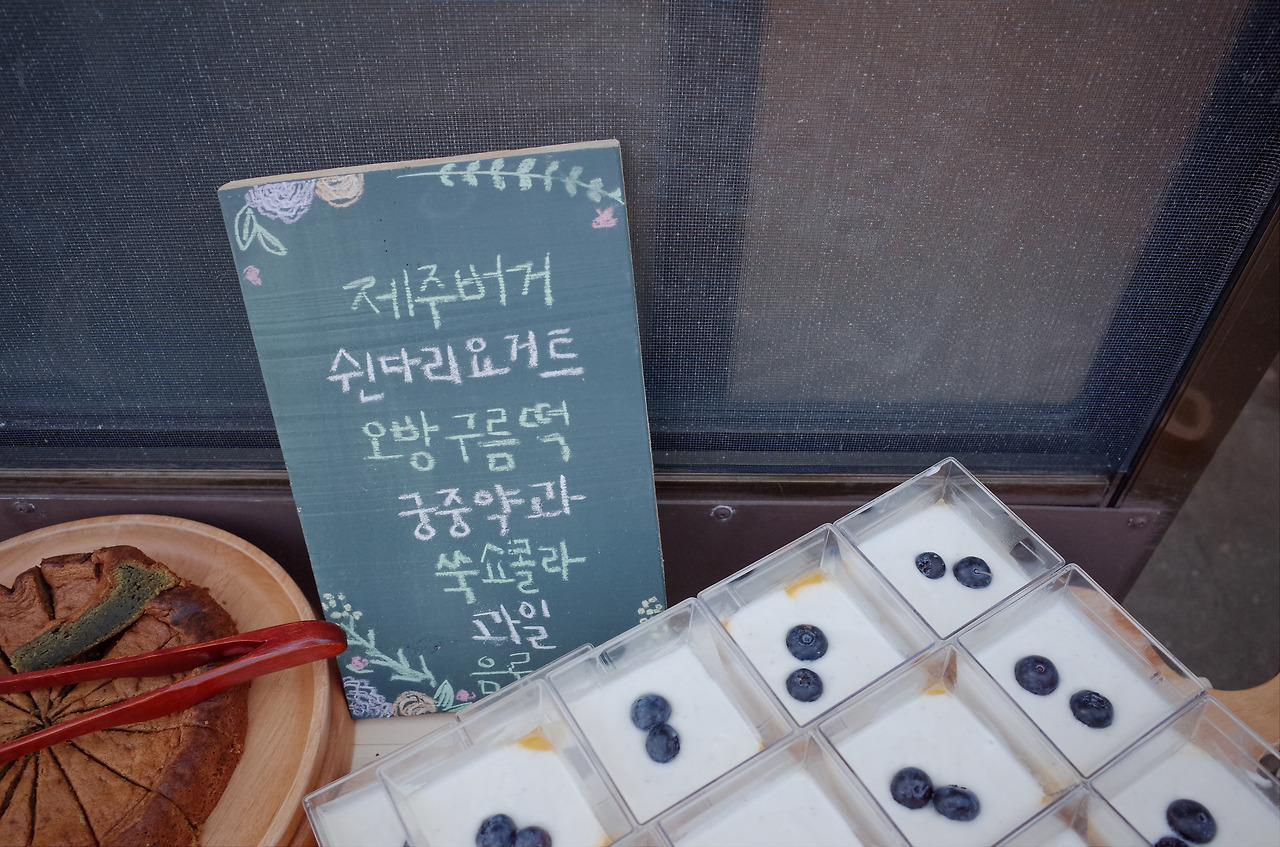 제주버거
쉰다리요거트
오방구름떡
궁중약과
쑥쇼콜라
과일
음료